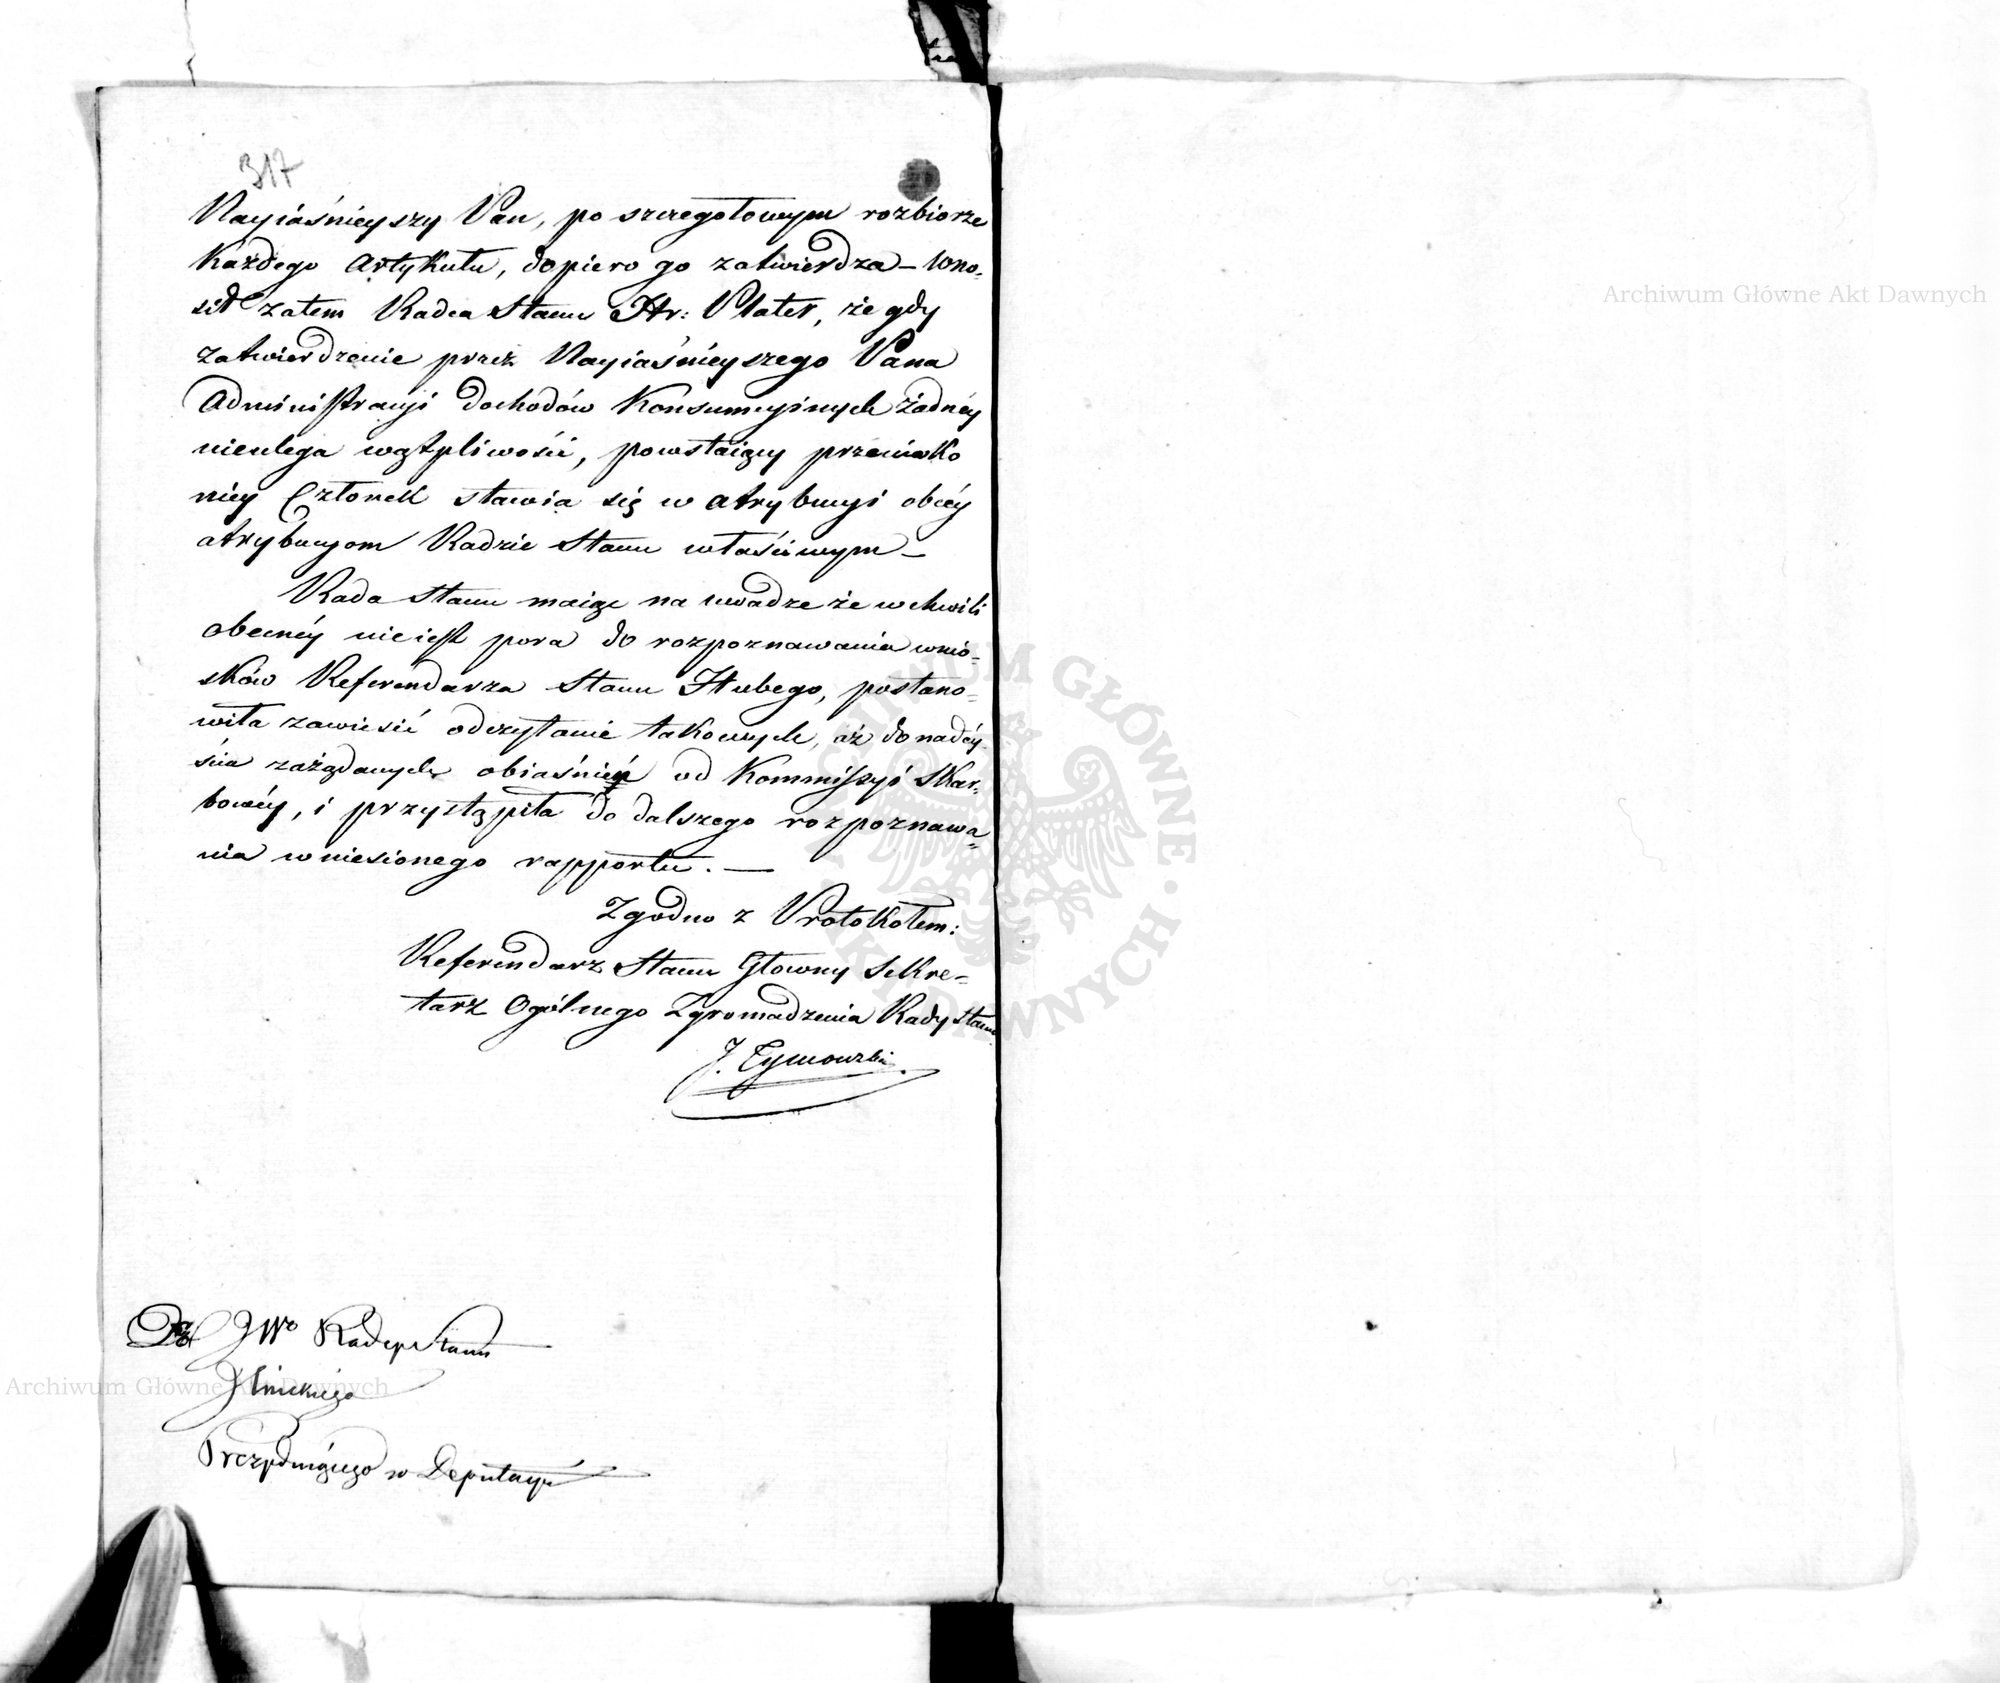 317
Nayiaśnieyszy Pan, po szczegołowym rozbiorze
każdego Artykułu, dopiero go zatwierdza – wno-
sił zatem Radca Stanu Hr: Plater, że gdy
zatwierdzenie przez Nayiaśnieyszego Pana
Administracyi dochodów Konsumcyinych żadnéy
nieulega wątpliwości, powstaiący przeciwko
niey Członek stawia się w atrybucyi obcéy
atrybucyom Radzie Stanu właściwym –
Rada Stanu maiąc na uwadze że w chwili
obecnéy nie iest pora do rozpoznawania wnio-
sków Referendarza Stanu Hubego, postano-
wiła zawiesić odczytanie takowych, aż do nadéy-
ścia zażądanych obiaśnień od Kommissyi Skar-
bowéy, i przystąpiła do dalszego rozpoznawa-
nia wniesionego rapportu. —
Zgodno z Protokołem:
Referendarz Stanu Głowny Sekre-
tarz Ogólnego Zgromadzenia Rady Stanu
J. Tymowski
Do JWo Radcy Stanu
Jlinskiego
Prezyduiącego w Deputacyi
Archiwum Główne Akt Dawnych
Archiwum Główne Akt Dawnych
ARCHIWUM GŁÓWNE · AKT DAWNYCH ·